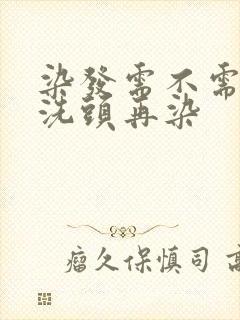 染發需不需
洗頭再染
瘤久保慎司 高